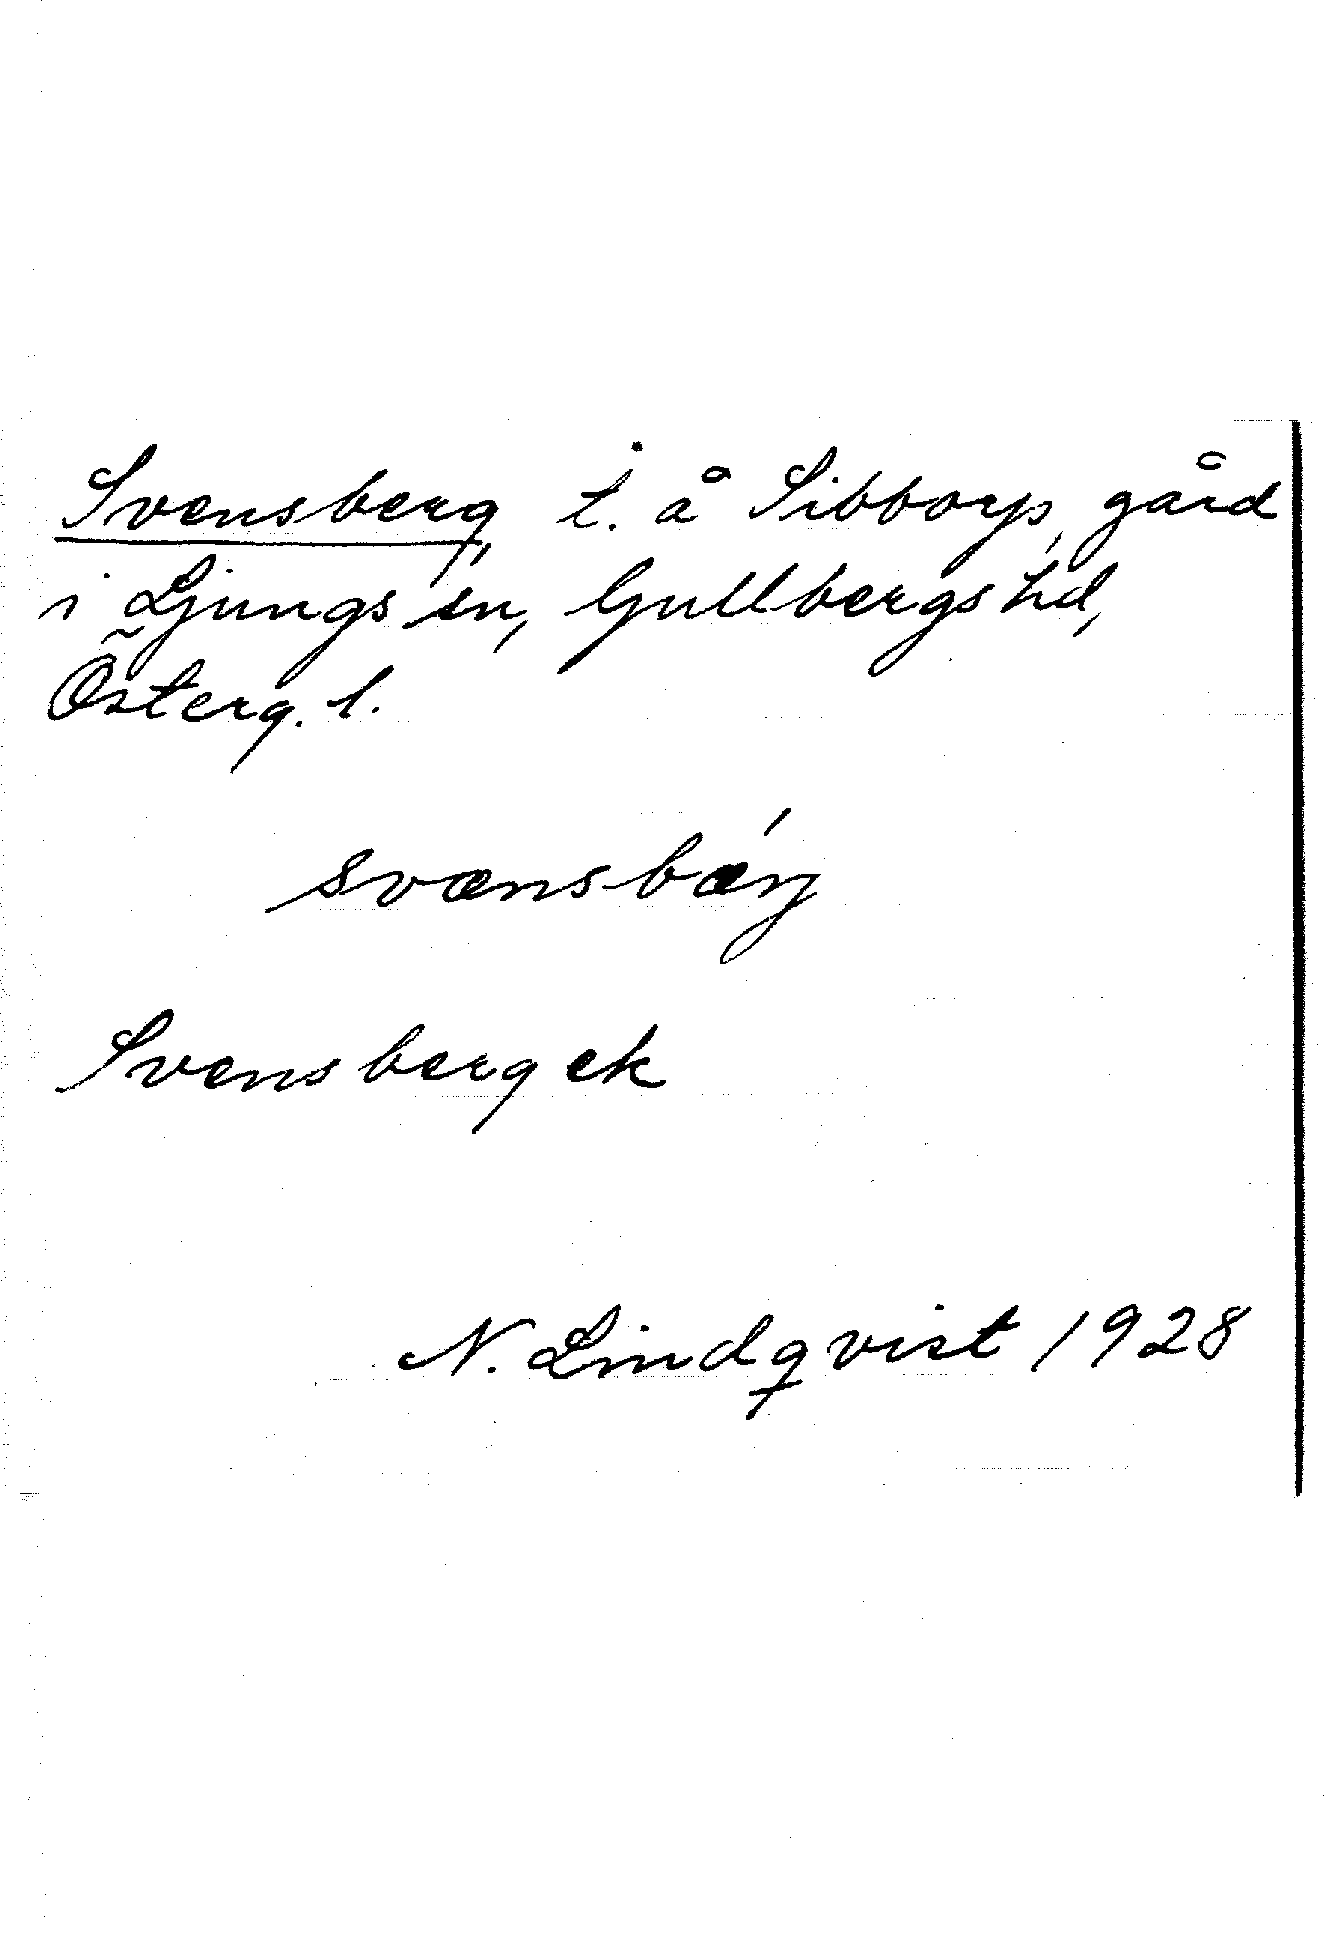 Svensberg, t. å Sibborp, gård
i Ljungs sn, Gullbergs hd,
Österg. l.
svænsbærj
Svensberg ek
N. Lindqvist 1928